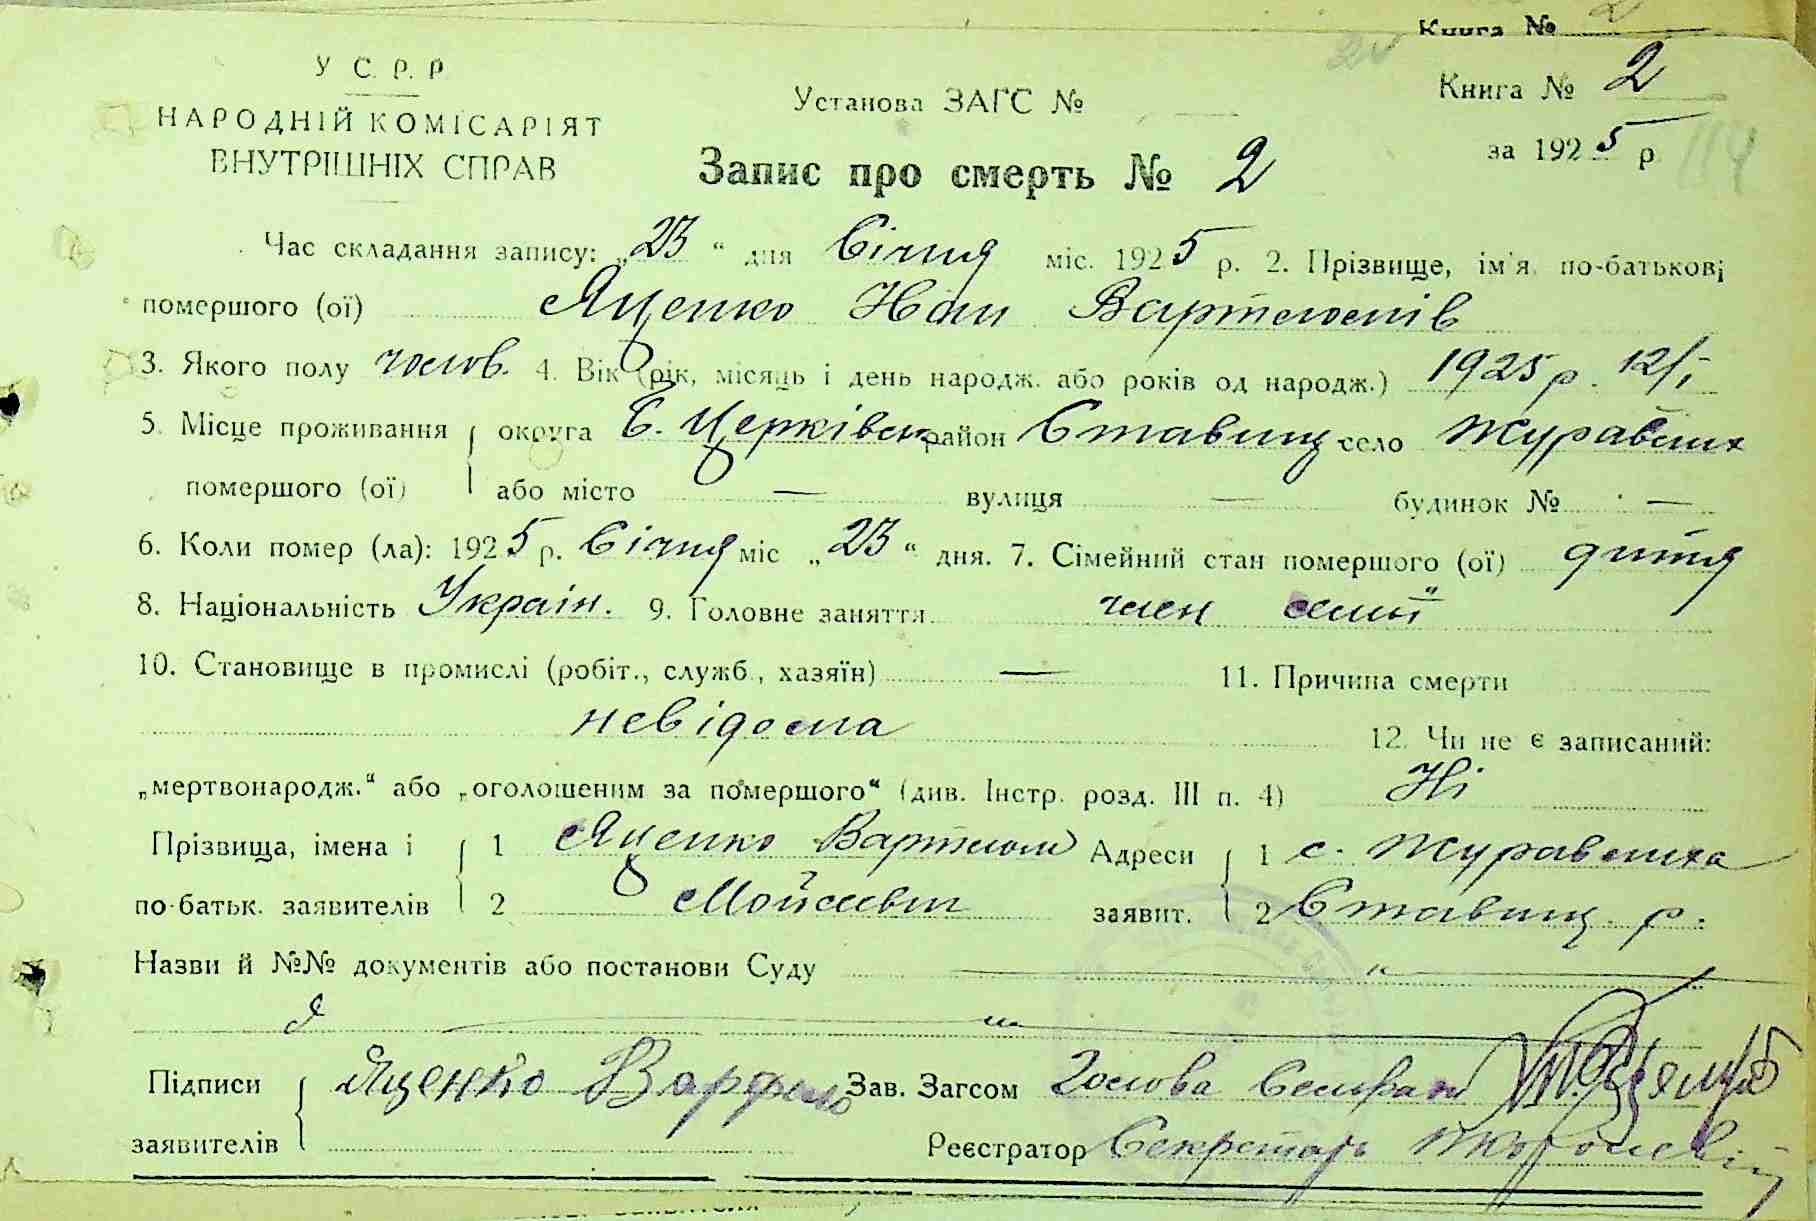 Книга № 2
У С. Р. Р
НАРОДНІЙ КОМІСАРІЯТ
ВНУТРІШНІХ СПРАВ
Установа ЗАГС №
Книга № 2
за 1925 р
114
Запис про смерть № 2
Час складання запису: „23“ дня Січня міс. 1925 р. 2. Прізвище, ім'я по-батькові
помершого (ої) Яценко Іван Вартоломів
3. Якого полу чолов. 4. Вік (рік, місяць і день народж. або років од народж.) 1925 р. 12/I
5. Місце проживання округа Б. Церківськ район Ставищ село Журавлиха
помершого (ої) або місто — вулиця — будинок № —
6. Коли помер (ла): 1925 р. Січня міс „23“ дня. 7. Сімейний стан помершого (ої) дитя
8. Національність Україн. 9. Головне заняття член семії
10. Становище в промислі (робіт., служб., хазяїн) — 11. Причина смерти
невідома 12. Чи не є записаний:
„мертвонародж.“ або „оголошеним за помершого“ (див. Інстр. розд. III п. 4) Ні
Прізвища, імена і 1 Яценко Вартолом Адреси 1 с. Журавлиха
по-батьк. заявителів 2 Мойсеевич заявит. 2 Ставищ. р.
Назви й №№ документів або постанови Суду
Підписи Яценко Варфоло Зав. Загсом Голова Сельради
заявителів Реєстратор Секретарь